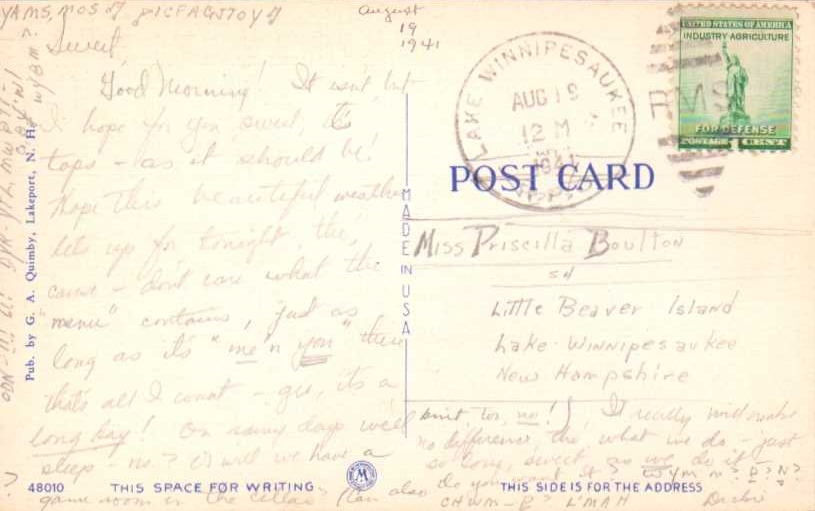 August
19
1941
Sweet
Good Morning! It isn't, but
I hope for you sweet, it's
tops - as it should be!
Hope this beautiful weather
lets up for tonight, tho,
cause - don't care what the
"menu" contains, just as
long as it's "me'n you" there
that's all I count - gee, it's a
long day! On rainy days we'll
sleep - no? or will we have a
game room in the cellar? Can also
knit too, no! It really will make
no difference, tho, what we do - just
so long, sweet, as we do it -
Do you want it? WYMM? P? N?
CHWM - P? L'MAH
LAKE WINNIPESAUKEE
AUG 19
12 M
1941
R.P.O.
RMS
UNITED STATES OF AMERICA
INDUSTRY·AGRICULTURE
FOR DEFENSE
POSTAGE 1 CENT
POST CARD
Miss Priscilla Boulton
Little Beaver Island
Lake Winnipesaukee
New Hampshire
MADE IN USA
Pub. by G. A. Quimby, Lakeport, N. H.
48010
THIS SPACE FOR WRITING
M
THIS SIDE IS FOR THE ADDRESS